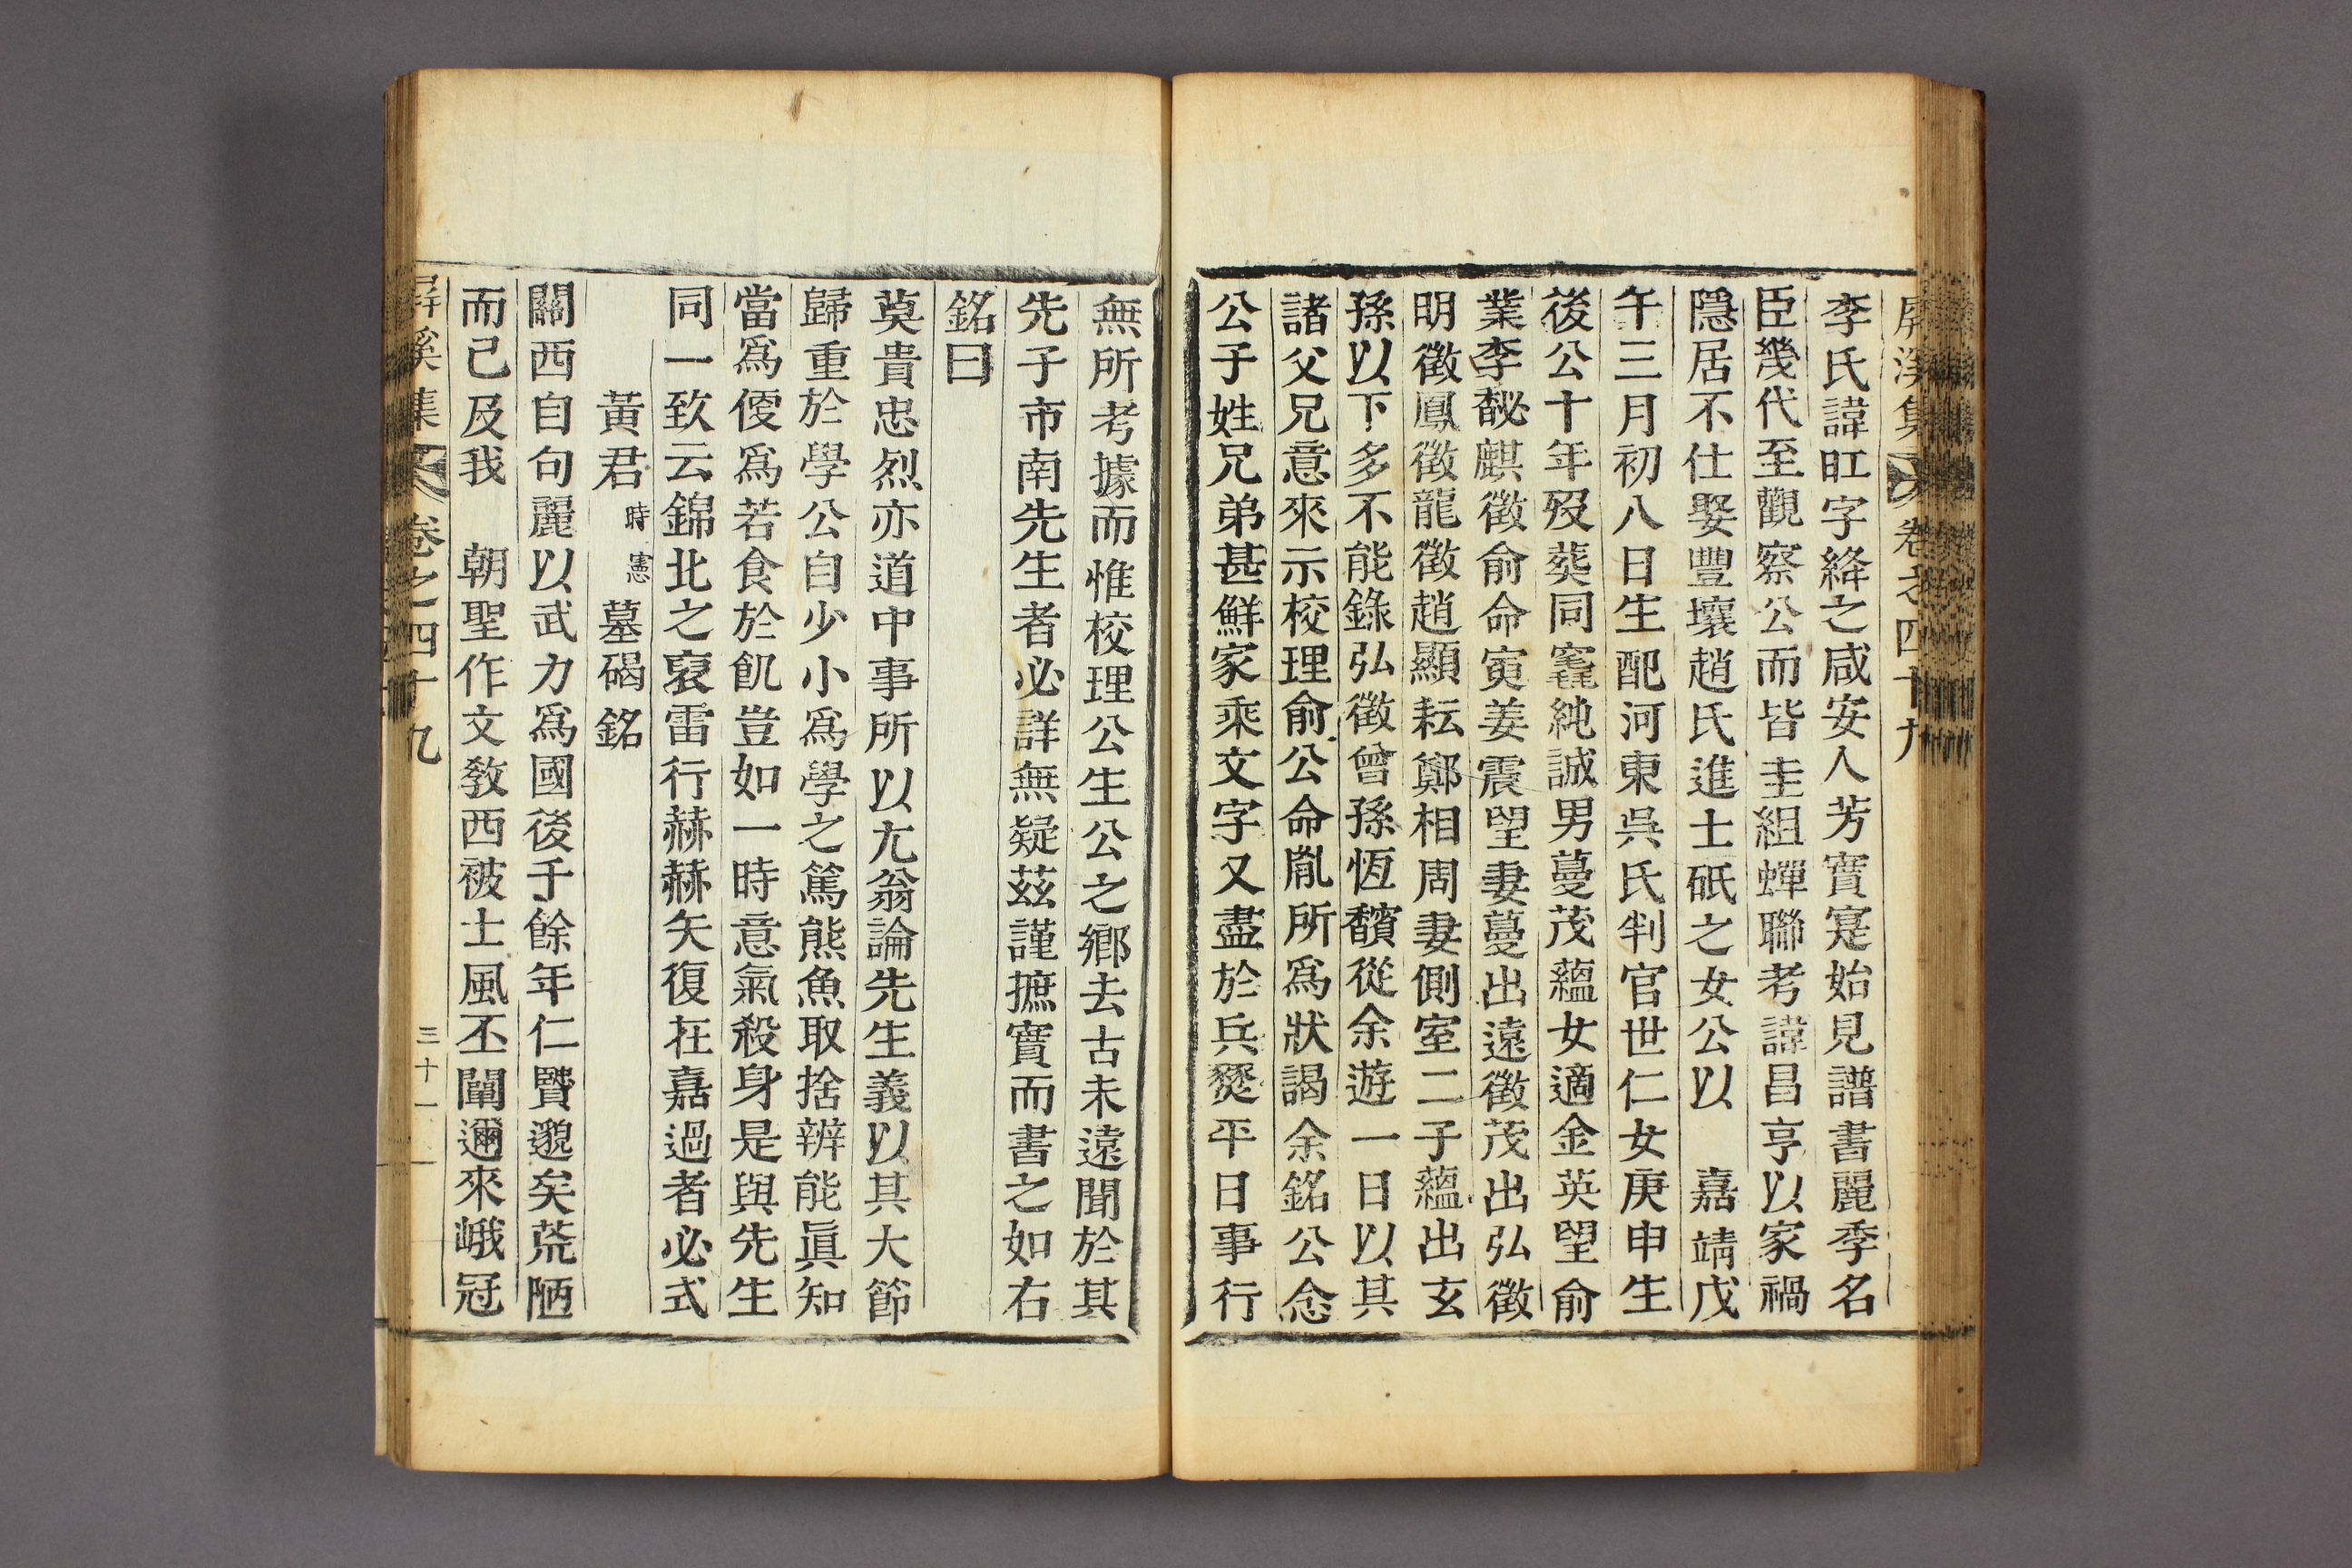 屛溪集 卷之四十九
李氏諱䢺字絳之咸安人芳實寔始見譜書麗季名
臣幾代至觀察公而皆圭組蟬聯考諱昌亨以家禍
隱居不仕娶豐壤趙氏進士砥之女公以 嘉靖戊
午三月初八日生配河東吳氏判官世仁女庚申生
後公十年歿葬同窀純誠男蔓茂蘊女適金英望俞
業李馝麒徵俞命寅姜震望妻蔓出遠徵茂出弘徵
明徵鳳徵龍徵趙顯耘鄭相周妻側室二子蘊出玄
孫以下多不能錄弘徵曾孫恆馪從余遊一日以其
諸父兄意來示校理俞公命胤所爲狀謁余銘公念
公子姓兄弟甚鮮家乘文字又盡於兵燹平日事行
無所考據而惟校理公生公之鄕去古未遠聞於其
先子市南先生者必詳無疑茲謹摭實而書之如右
銘曰
奠貴忠烈亦道中事所以尤翁論先生義以其大節
歸重於學公自少小爲學之篤熊魚取捨辨能眞知
當爲便爲若食於飢豈如一時意氣殺身是與先生
同一致云錦北之裒雷行赫赫矢復在嘉過者必式
黃君時憲墓碣銘
關西自句麗以武力爲國後千餘年仁賢邈矣荒陋
而已及我 朝聖作文敎西被士風丕闡邇來峨冠
屛溪集 卷之四十九 三十一